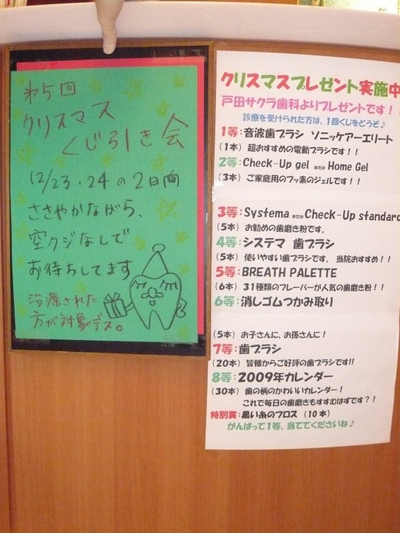 第5回
クリスマス
くじ引き会
12/23・24の2日間
ささやかながら、
空クジなしで
お待ちしてます
治療された
方が対象デス。
クリスマスプレゼント実施中
戸田サクラ歯科よりプレゼントです!
診療を受けられた方は、1回くじをどうぞ♪
1等:音波歯ブラシ ソニッケアーエリート
(1本) 超おすすめの電動ブラシです!!
2等:Check-Up gel または Home Gel
(3本) ご家庭用のフッ素のジェルです!!
3等:Systema または Check-Up standard
(5本) お勧めの歯磨き粉です。
4等:システマ 歯ブラシ
(5本) 使いやすい歯ブラシです。 当院おすすめ!!
5等:BREATH PALETTE
(6本) 31種類のフレーバーが人気の歯磨き粉!!
6等:消しゴムつかみ取り
(5本) お子さんに、お孫さんに!
7等:歯ブラシ
(20本) 皆様からご好評の歯ブラシです!!
8等:2009年カレンダー
(30本) 歯の柄のかわいいカレンダー!
これで毎日の歯磨きもすすむはずです?!
特別賞:黒い糸のフロス (10本)
がんばって1等、当ててくださいね♪